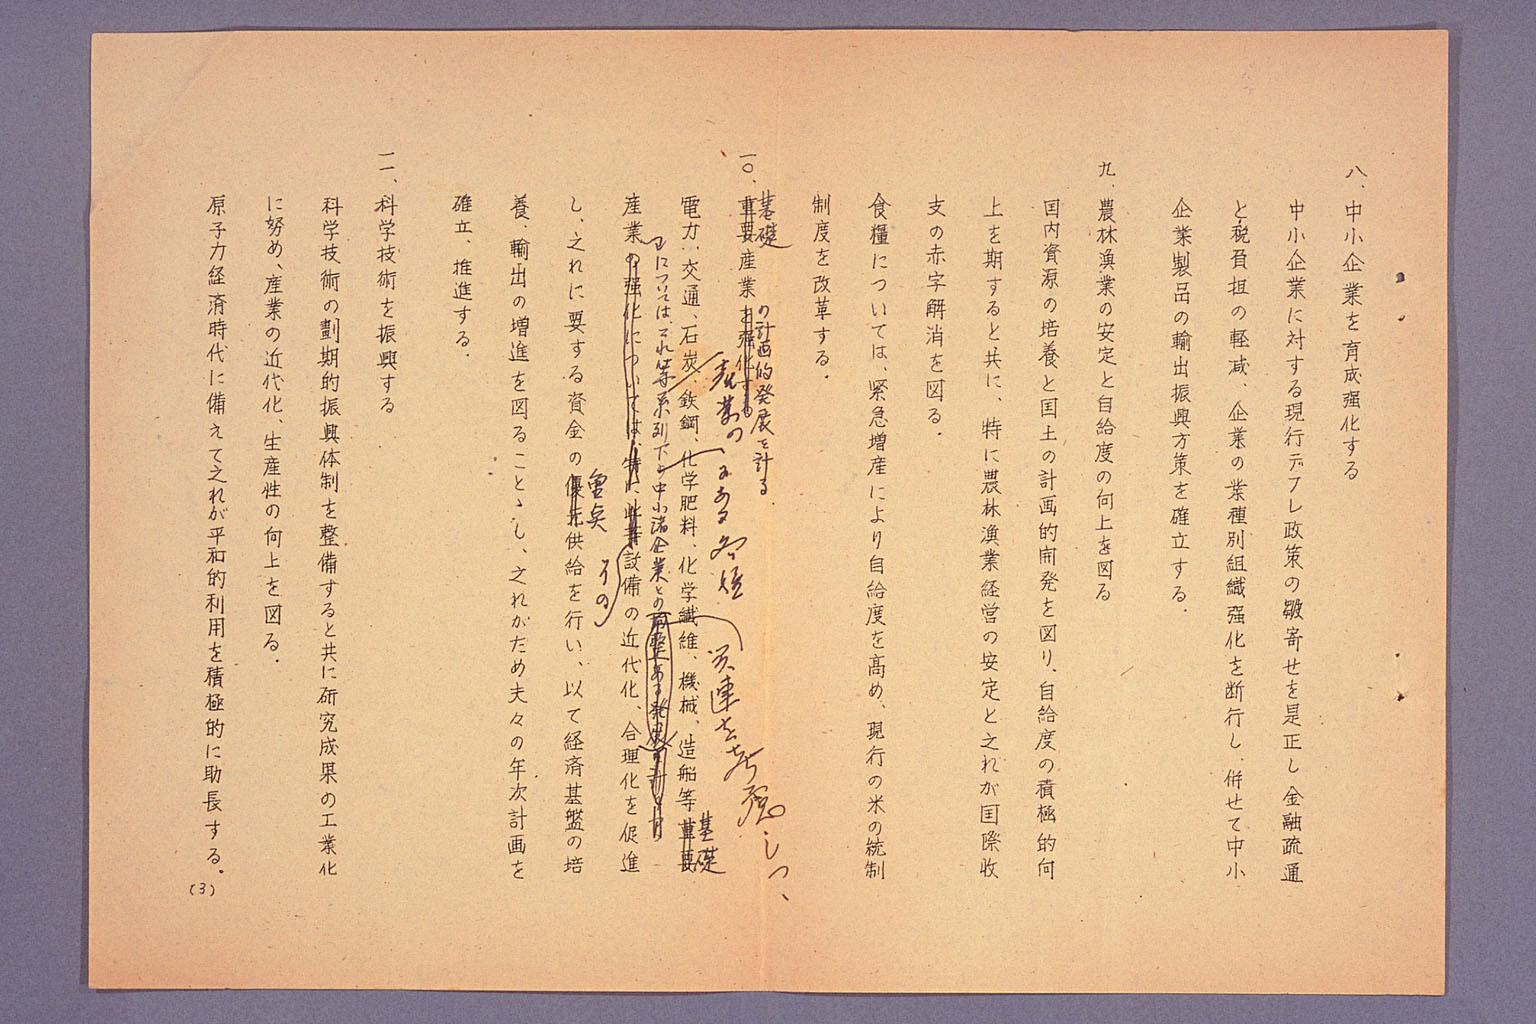 八、中小企業を育成强化する
中小企業に対する現行デフレ政策の皺寄せを是正し金融疏通
と税負担の軽減、企業の業種別組織强化を断行し、併せて中小
企業製品の輸出振興方策を確立する.
九、農林漁業の安定と自給度の向上を図る
国内資源の培養と国土の計画的開発を図り、自給度の積極的向
上を期すると共に、特に農林漁業経営の安定と之れが国際收
支の赤字解消を図る.
食糧については、緊急増産により自給度を高め、現行の米の統制
制度を改革する.
基礎 の計画的発展を計る.
一〇、重要産業を强化する
産業の
にある各種
関連を考慮しつつ、
基礎
電力、交通、石炭、鉄鋼、化学肥料、化学繊維、機械、造船等重要
については、それ等系列下の中小諸企業との調整ある発展を計ると共
産業の强化については、特に此等設備の近代化、合理化を促進
重点
し、之れに要する資金の優先供給を行い、以て経済基盤の培
養、輸出の増進を図ることゝし、之れがため夫々の年次計画を
確立、推進する.
一一、科学技術を振興する
科学技術の劃期的振興体制を整備すると共に研究成果の工業化
に努め、産業の近代化、生産性の向上を図る.
原子力経済時代に備えて之れが平和的利用を積極的に助長する.
(3)